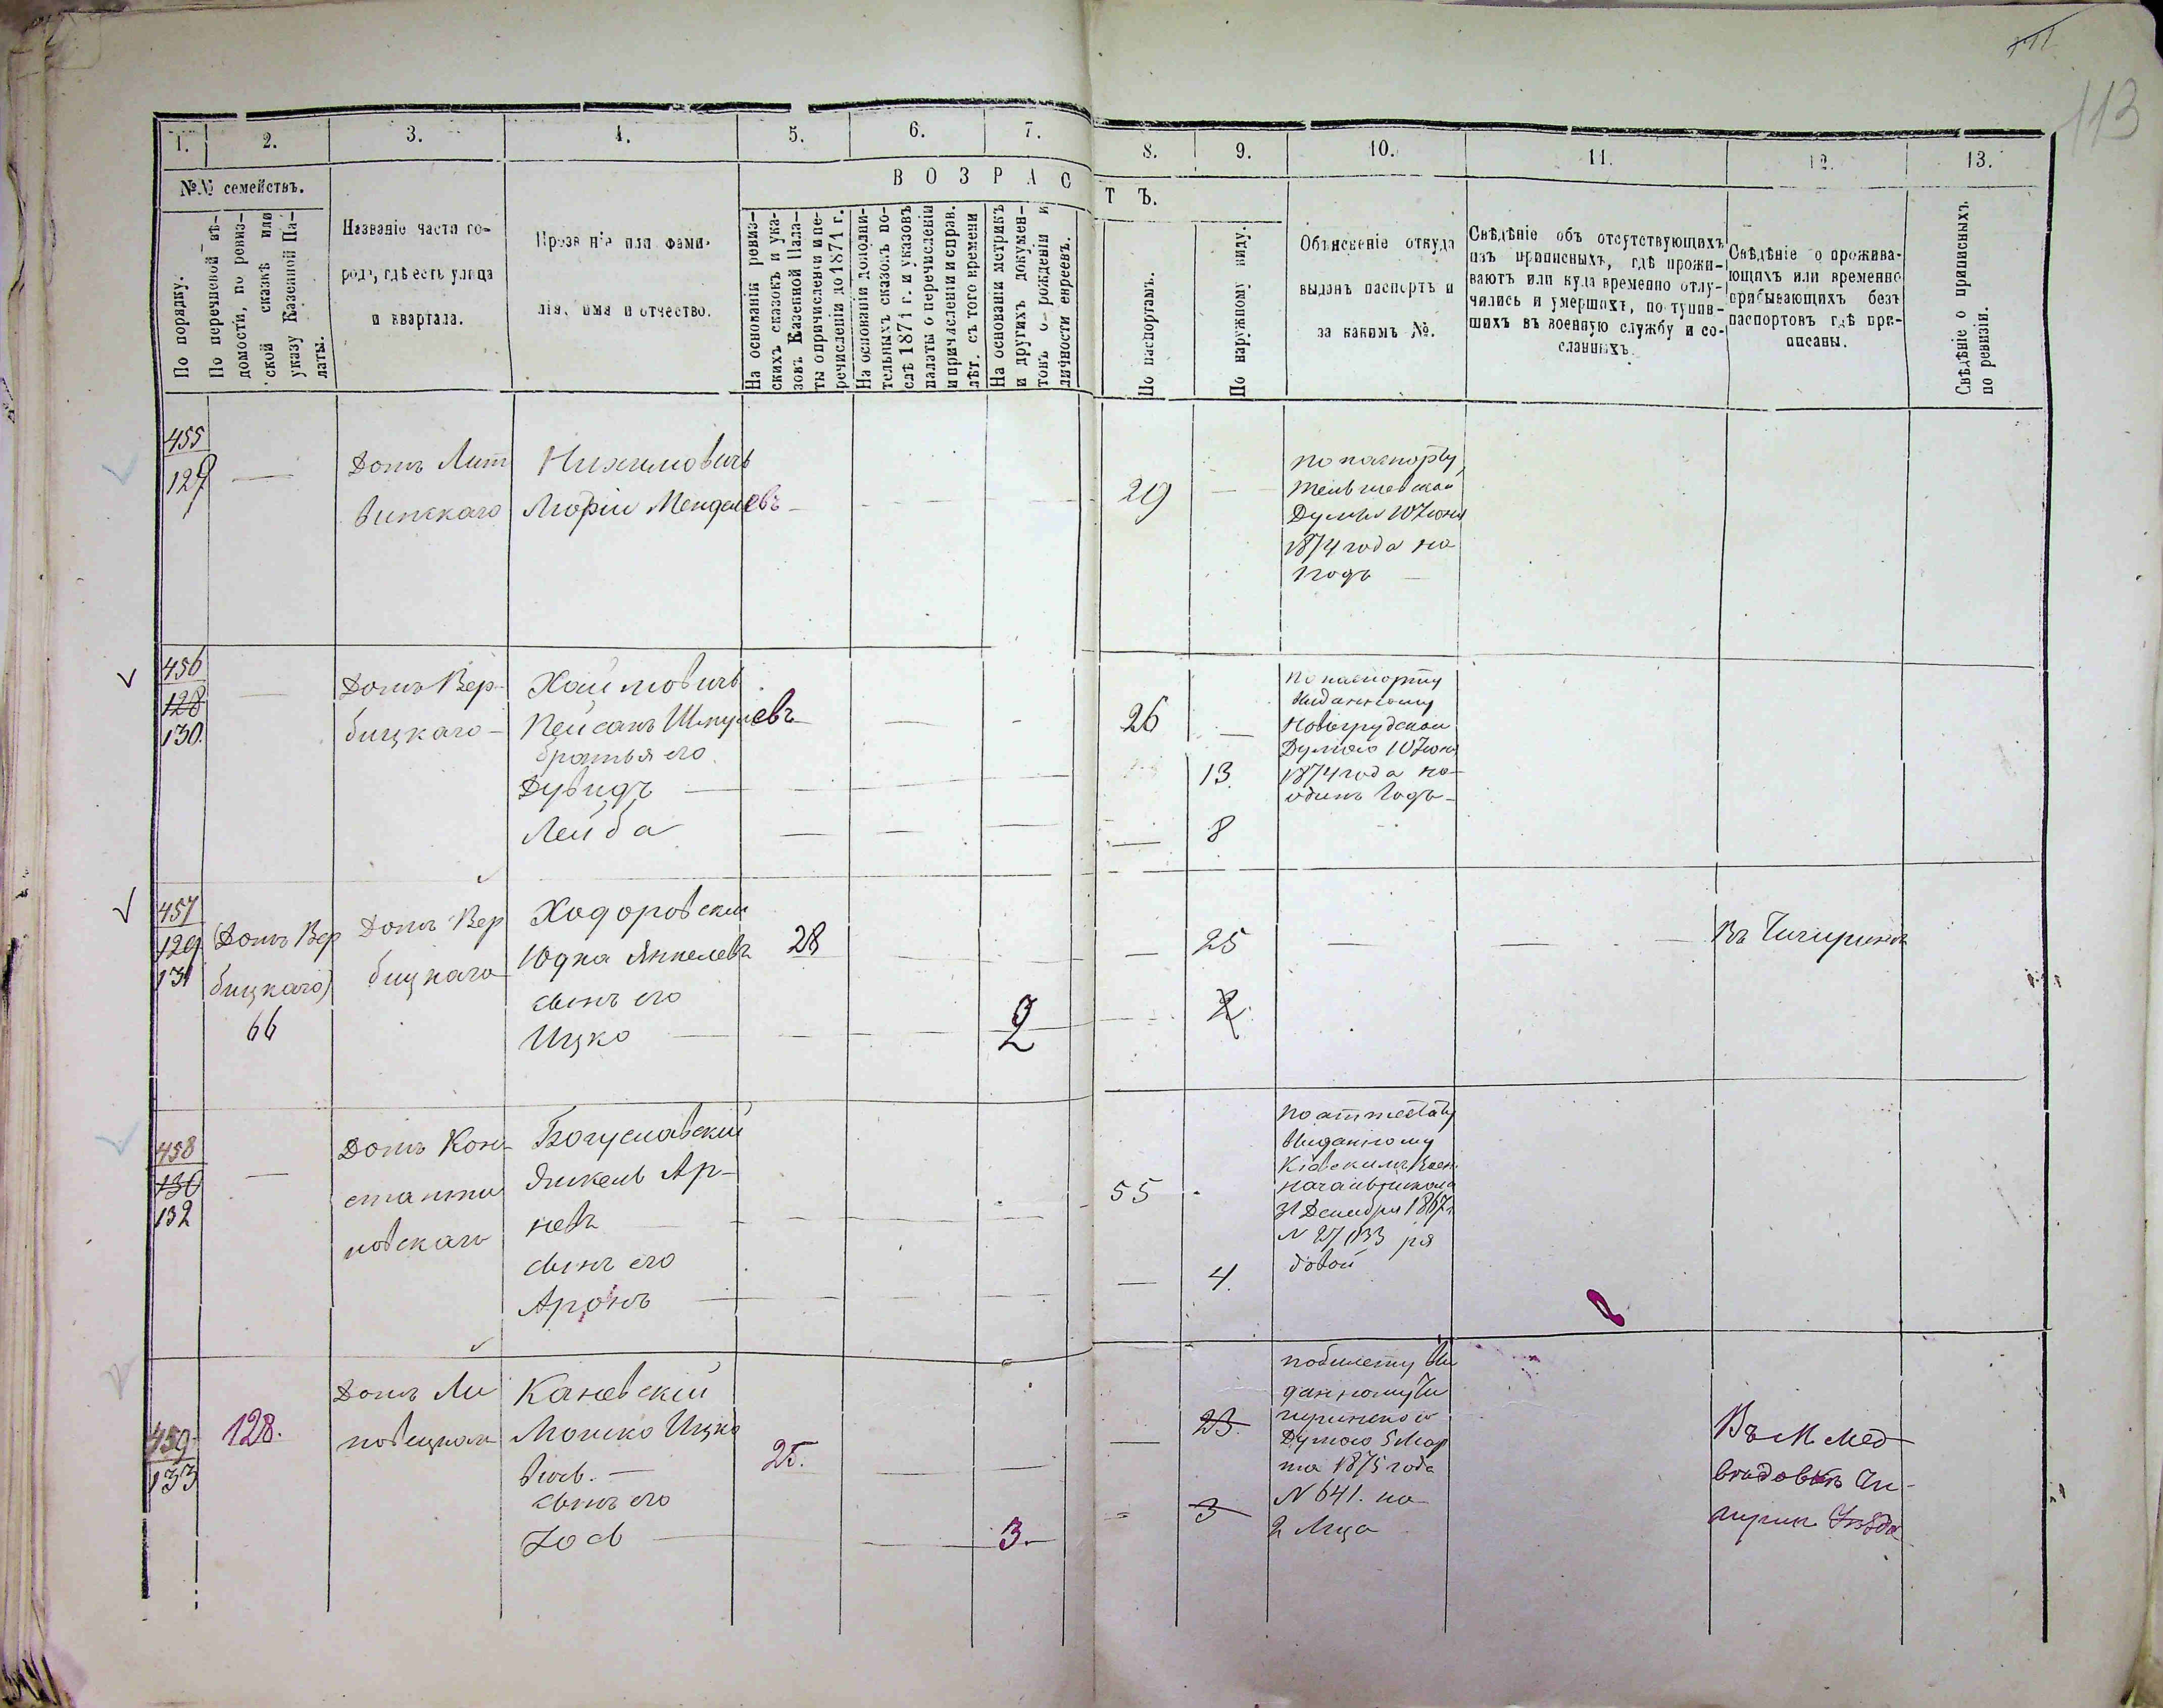 111
113
1.
2.
3.
4.
5.
6.
7.
8.
9.
10.
11.
12.
13.
№№ семействъ.
В О З Р А С Т Ъ.
По порядку.
По перечневой вѣ-
домости, по ревиз-
ской сказкѣ или
указу Казенной Па-
латы.
Названіе части го-
рода, гдѣ есть улица
и квартала.
Прозваніе или фами-
лія, имя и отчество.
На основаніи ревиз-
скихъ сказокъ и ука-
зовъ Казенной Пала-
ты о причисленіи и пе-
речисленіи до 1871 г.
На основаніи дополни-
тельныхъ сказокъ по-
слѣ 1871 г. и указовъ
палаты о перечисленіи
и причисленіи и справ.
лѣт. съ того времени
На основаніи метрикъ
и другихъ докумен-
товъ о рожденіи и
личности евреевъ.
По паспортамъ.
По наружному виду.
Объясненіе откуда
выданъ паспортъ и
за какимъ №.
Свѣдѣніе объ отсутствующихъ
изъ приписныхъ, гдѣ прожи-
ваютъ или куда временно отлу-
чились и умершихъ, поступив-
шихъ въ военную службу и со-
сланныхъ.
Свѣдѣніе о прожива-
ющихъ или временно
прибывающихъ безъ
паспортовъ гдѣ при-
писаны.
Свѣдѣніе о приписныхъ
по ревизіи.
455
129
Домъ Лит
винскаго
Нихимовичъ
Мордко Менделевъ
29
по паспорту
Тельшевской
Думы 10 Іюня
1874 года на
1 годъ
456
128
130.
Домъ Вер-
бицкаго
Хаимовичъ
Пейсахъ Шмулевъ
братья его
Дувидъ
Лейба
26
13.
8
по паспорту
выданному
Новогрудской
Думою 10 Іюня
1874 года на
одинъ годъ
457
129
131
(Домъ Вер
бицкаго)
66
Домъ Вер
бицкаго
Ходоровскій
Юдка Янкелевъ
сынъ его
Ицко
28
2
25
2
Въ Чигиринѣ
458
130
132
Домъ Кон-
станти
новскаго
Богуславскій
Янкель Ар-
невъ
сынъ его
Аронъ
55
4.
по аттестату
выданному
Кіевскимъ Воен.
начальникомъ
31 Декабря 1867 г.
N 27033 ря
довой
459
133
128.
Домъ Ли
повецкаго
Каневскій
Мошко Ицко
вичъ.
сынъ его
Іосъ
25.
3.
23.
3
по билету вы
данному Чи
гиринскою
Думою 5 Мар
та 1875 года
N 641. на
2 Мца
Въ М. Мед-
вѣдовкѣ Чи-
гирин. Уѣзда